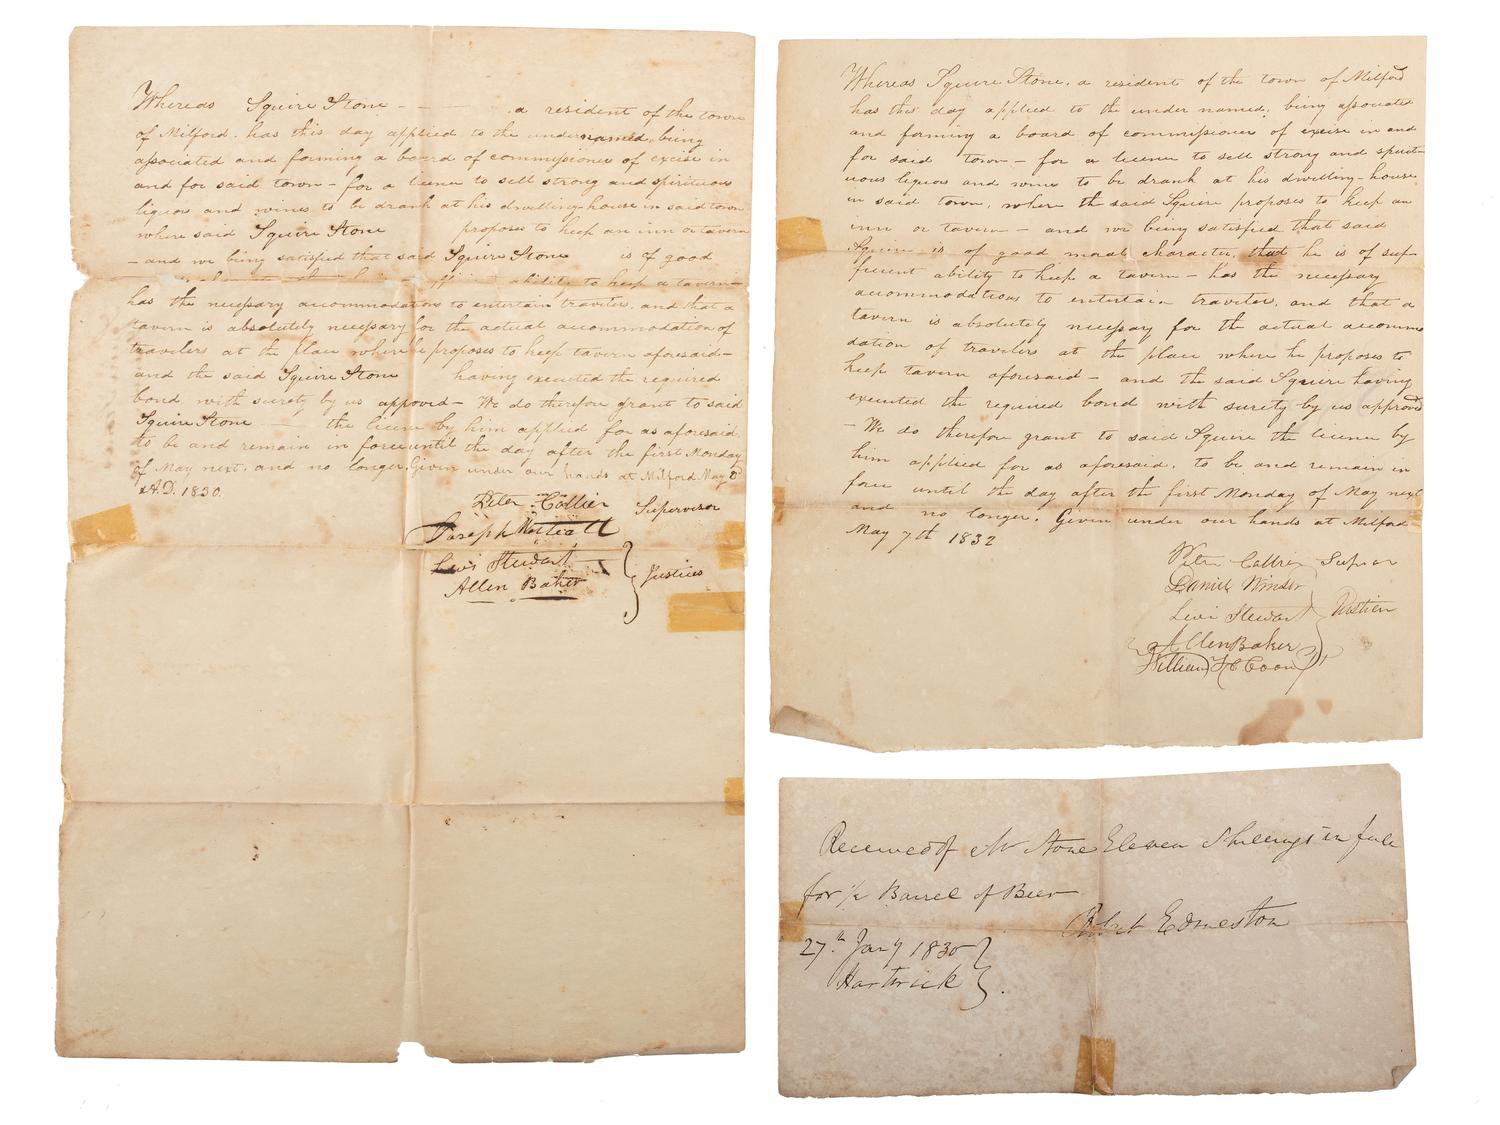 Whereas Squire Stone - a resident of the town
of Milford. has this day applied to the undernamed, being
associated and forming a board of commissioner of excise in
and for said town - for a licence to sell strong and spirituous
liquors and wines to be drank at his dwelling-house in said town
where said Squire Stone proposes to keep an inn or tavern
- and we being satisfied that said Squire Stone is of good
ability to keep a tavern -
has the necessary accommodations to entertain travelers, and that a
tavern is absolutely necessary for the actual accommodation of
travelers at the place where he proposes to keep tavern aforesaid -
and the said Squire Stone having executed the required
bond with surety by us approved - We do therefore grant to said
Squire Stone the licence by him applied for as aforesaid,
to be and remain in force until the day after the first Monday
of May next, and no longer, Given under our hands at Milford May
A.D. 1830.
Peter Collier Supervisor
Joseph
Levi Stewart
Allen Baker
Justices
Whereas Squire Stone, a resident of the town of Milford
has this day applied to the under named, being associated
and forming a board of commissioner of excise in and
for said town - for a licence to sell strong and spirit-
uous liquors and wines to be drank at his dwelling-house
in said town, where the said Squire proposes to keep an
inn or tavern - and we being satisfied that said
Squire is of good moral character, that he is of suf-
ficient ability to keep a tavern - has the necessary
accommodations to entertain travelers, and that a
tavern is absolutely necessary for the actual accommo
dation of travelers at the place where he proposes to
keep tavern aforesaid - and the said Squire having
executed the required bond with surety by us approved
- We do therefore grant to said Squire the licence by
him applied for as aforesaid, to be and remain in
force until the day after the first Monday of May next
and no longer. Given under our hands at Milford
May 7th 1832
Peter Collier
Daniel Winsor
Levi Stewart
Allen Baker
William
Received of Mr Stone Eleven Shillings in full
for 1/2 Barrel of Beer
Robert Edmeston
27th Jany 1830
Hartwick